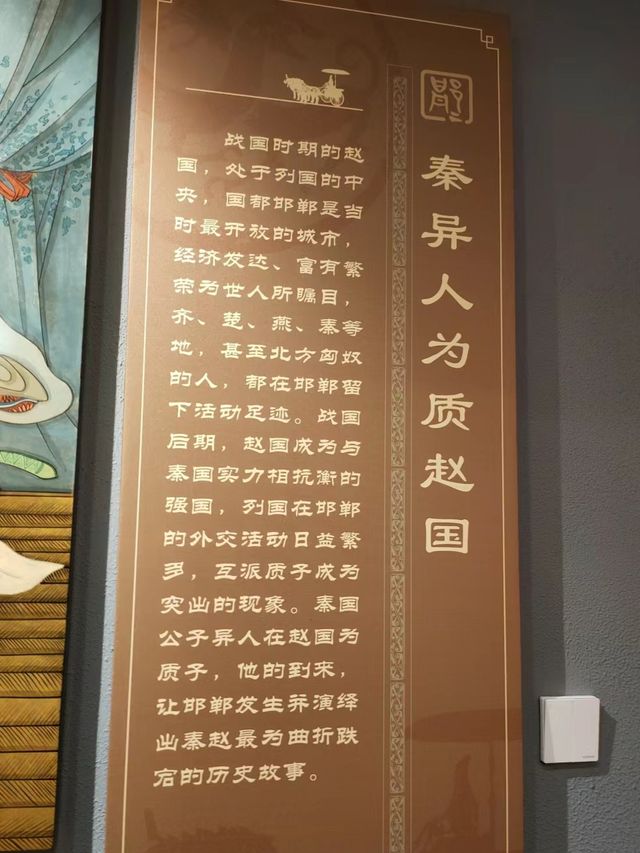 秦异人为质赵国
战国时期的赵
国，处于列国的中
央，国都邯郸是当
时最开放的城市，
经济发达、富有繁
荣为世人所瞩目，
齐、楚、燕、秦等
地，甚至北方匈奴
的人，都在邯郸留
下活动足迹。战国
后期，赵国成为与
秦国实力相抗衡的
强国，列国在邯郸
的外交活动日益繁
多，互派质子成为
突出的现象。秦国
公子异人在赵国为
质子，他的到来，
让邯郸发生并演绎
出秦赵最为曲折跌
宕的历史故事。